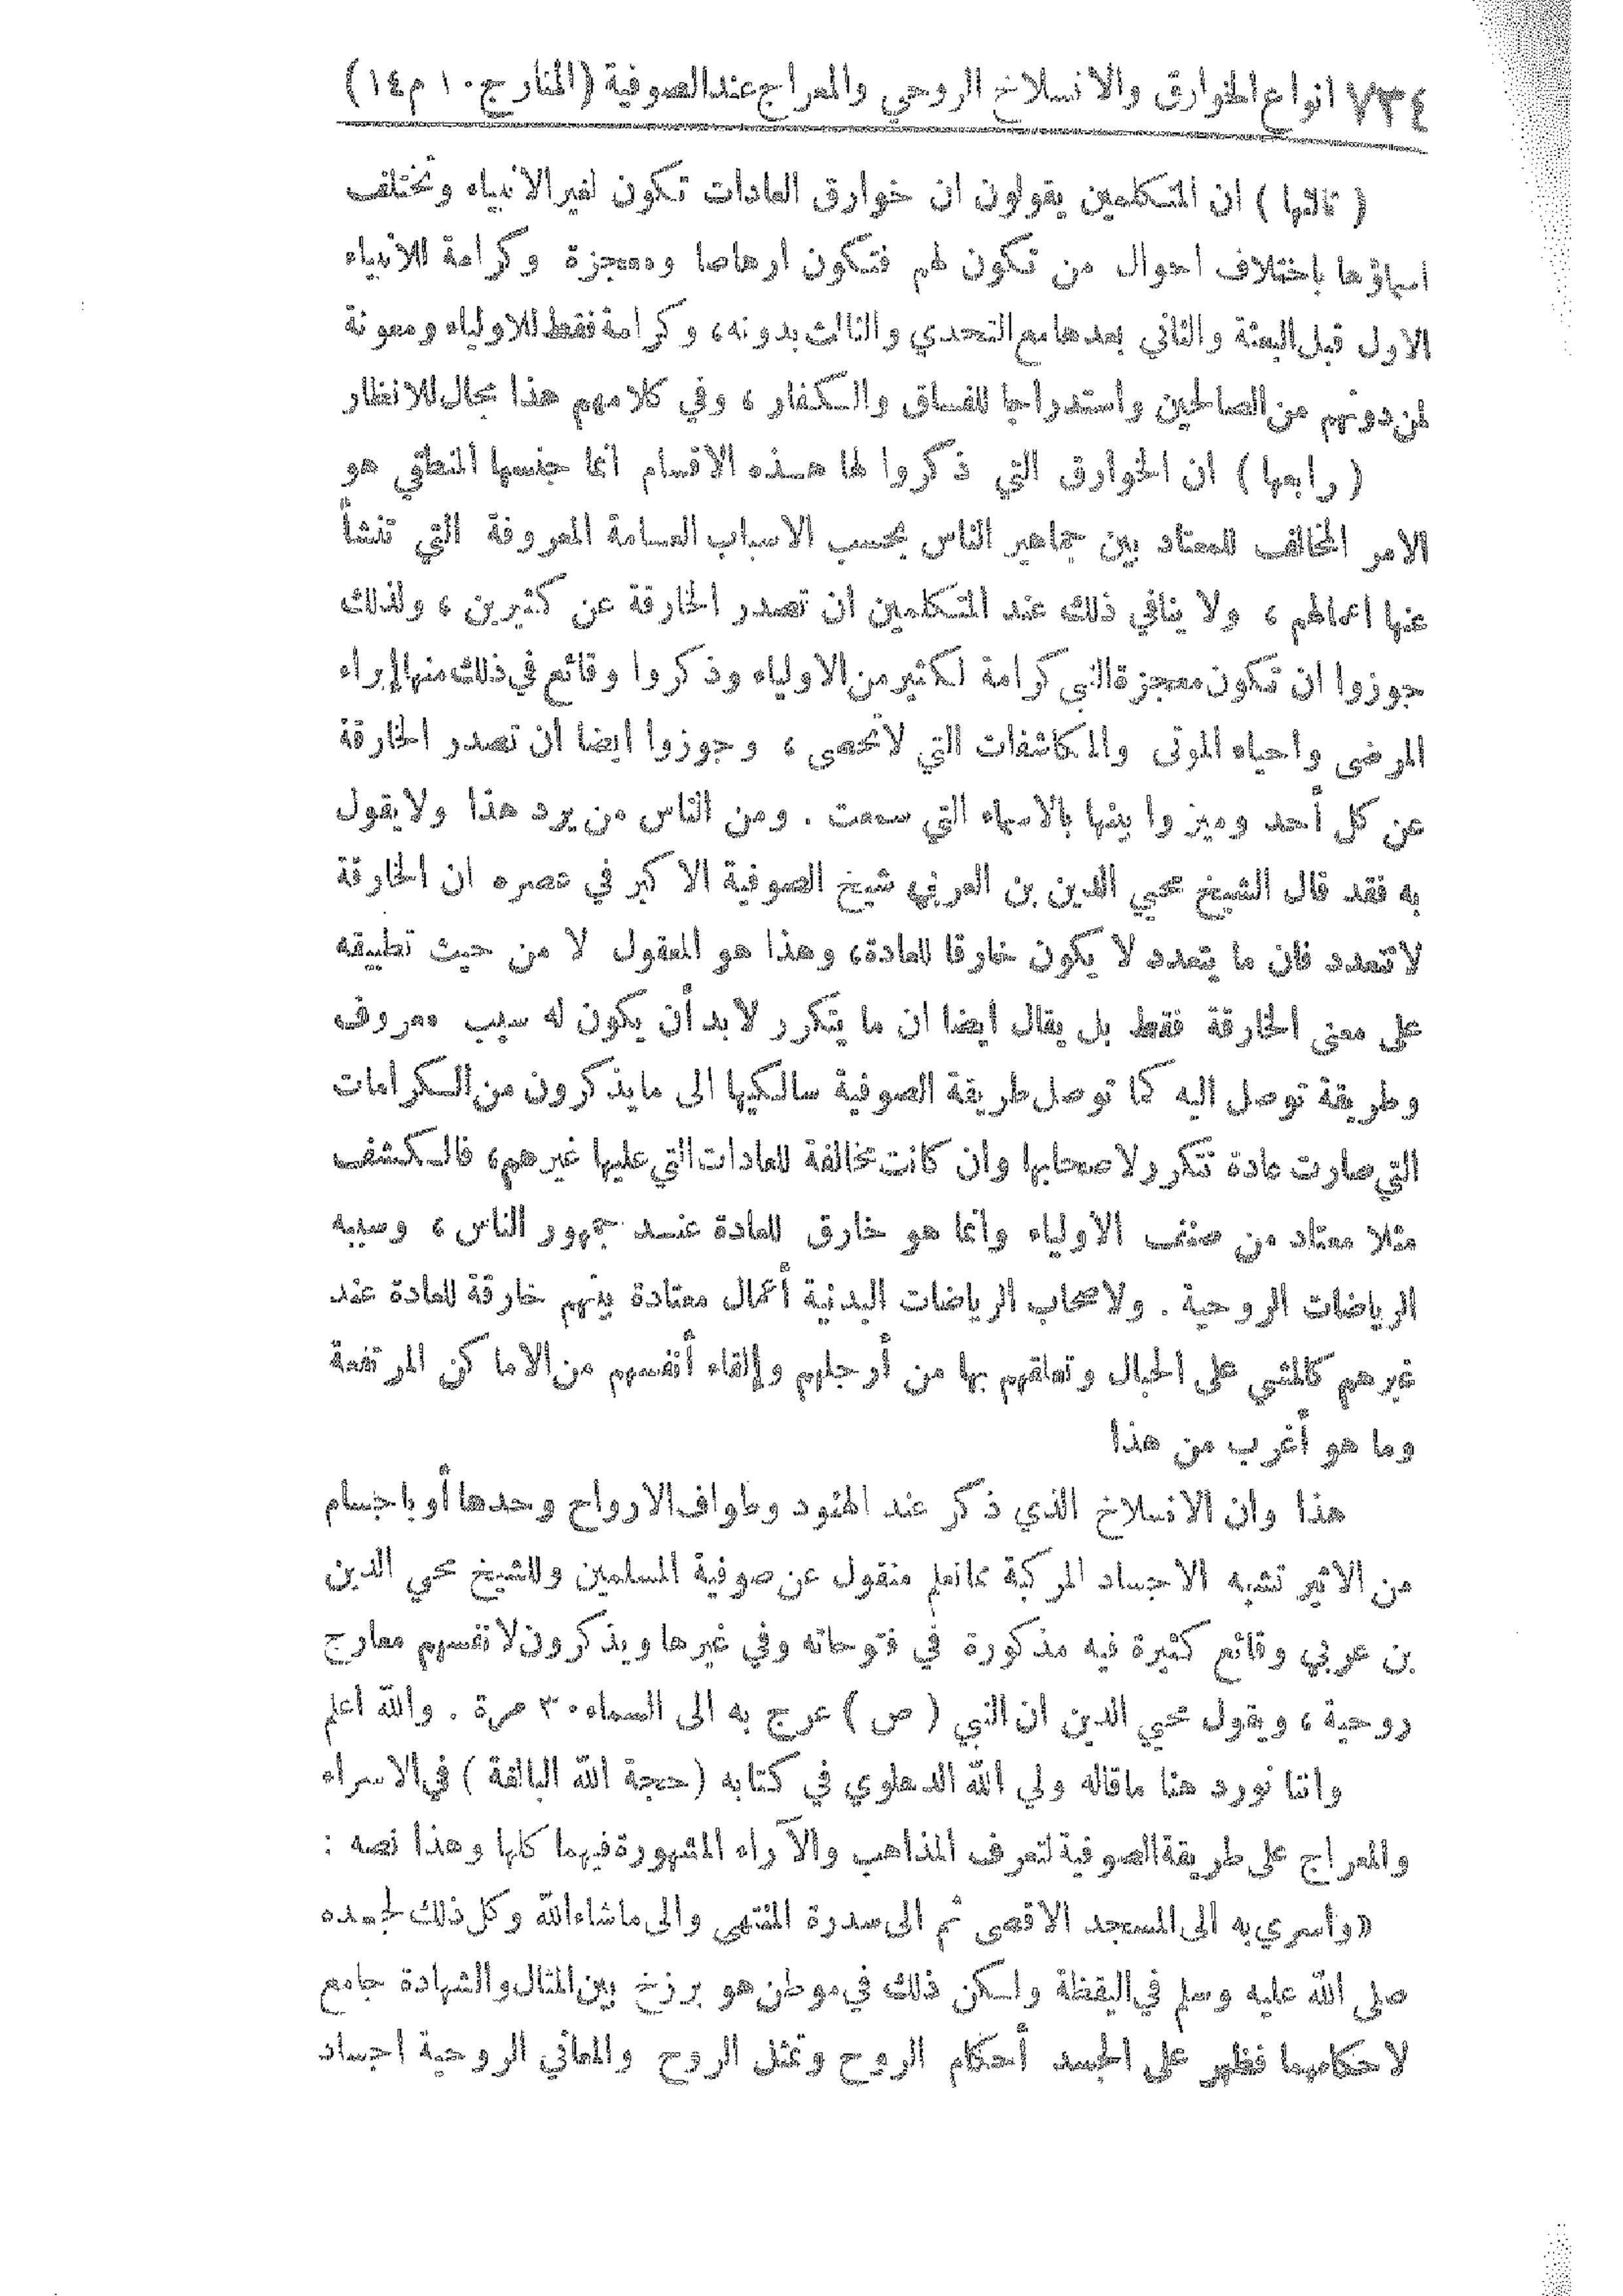 ٧٣٤ انواع الخوارق والانسلاخ الروحي والمعراج عند الصوفية (المنار ج ١٠ م ١٤)
( ثالثها ) ان المتكلمين يقولون ان خوارق العادات تكون لغير الانبياء وتختلف
اسماؤها باختلاف احوال من تكون لهم فتكون ارهاصا ومعجزة وكرامة للانبياء
الاول قبل البعثة والثاني بعدها مع التحدي والثالث بدونه، وكرامة فقط للاولياء ومعونة
لمن دونهم من الصالحين واستدراجا للفساق والكفار ، وفي كلامهم هذا مجال للانظار
( رابعها ) ان الخوارق التي ذكروا لها هذه الاقسام انما جنسها المنطقي هو
الامر المخالف للمعتاد بين جماهير الناس بحسب الاسباب العامة المعروفة التي تنشأ
عنها اعمالهم ، ولا ينافي ذلك عند المتكلمين ان تصدر الخارقة عن كثيرين ، ولذلك
جوزوا ان تكون معجزة النبي كرامة لكثير من الاولياء وذكروا وقائع في ذلك منها إبراء
المرضى واحياء الموتى والمكاشفات التي لا تحصى ، وجوزوا ايضا ان تصدر الخارقة
عن كل أحد وميزوا بينها بالاسماء التي سمعت . ومن الناس من يرد هذا ولا يقول
به فقد قال الشيخ محيي الدين بن العربي شيخ الصوفية الاكبر في عصره ان الخارقة
لا تتعدد فان ما يتعدد لا يكون خارقا للعادة، وهذا هو المعقول لا من حيث تطبيقه
على معنى الخارقة فقط بل يقال ايضا ان ما يتكرر لا بد أن يكون له سبب معروف
وطريقة توصل اليه كما توصل طريقة الصوفية سالكيها الى ما يذكرون من الكرامات
التي صارت عادة تتكرر لاصحابها وان كانت مخالفة للعادات التي عليها غيرهم، فالكشف
مثلا معتاد من صنف الاولياء وانما هو خارق للعادة عند جمهور الناس ، وسببه
الرياضات الروحية . ولاصحاب الرياضات البدنية أعمال معتادة بينهم خارقة للعادة عند
غيرهم كالمشي على الحبال وتعلقهم بها من أرجلهم وإلقاء أنفسهم من الاماكن المرتفعة
وما هو أغرب من هذا
هذا وان الانسلاخ الذي ذكر عند الهنود وطواف الارواح وحدها أو باجسام
من الاثير تشبه الاجساد المركبة مما نعلم منقول عن صوفية المسلمين وللشيخ محي الدين
بن عربي وقائع كثيرة فيه مذكورة في فتوحاته وفي غيرها ويذكرون لانفسهم معارج
روحية ، ويقول محيي الدين ان النبي ( ص ) عرج به الى السماء ٣٠ مرة . والله اعلم
واننا نورد هنا ما قاله ولي الله الدهلوي في كتابه (حجة الله البالغة ) في الاسراء
والمعراج على طريقة الصوفية لتعرف المذاهب والآراء المشهورة فيهما كلها وهذا نصه :
«وأسري به الى المسجد الاقصى ثم الى سدرة المنتهى والى ما شاء الله وكل ذلك لجسده
صلى الله عليه وسلم في اليقظة ولكن ذلك في موطن هو برزخ بين المثال والشهادة جامع
لاحكامهما فظهر على الجسد أحكام الروح وتمثل الروح والمعاني الروحية اجساد